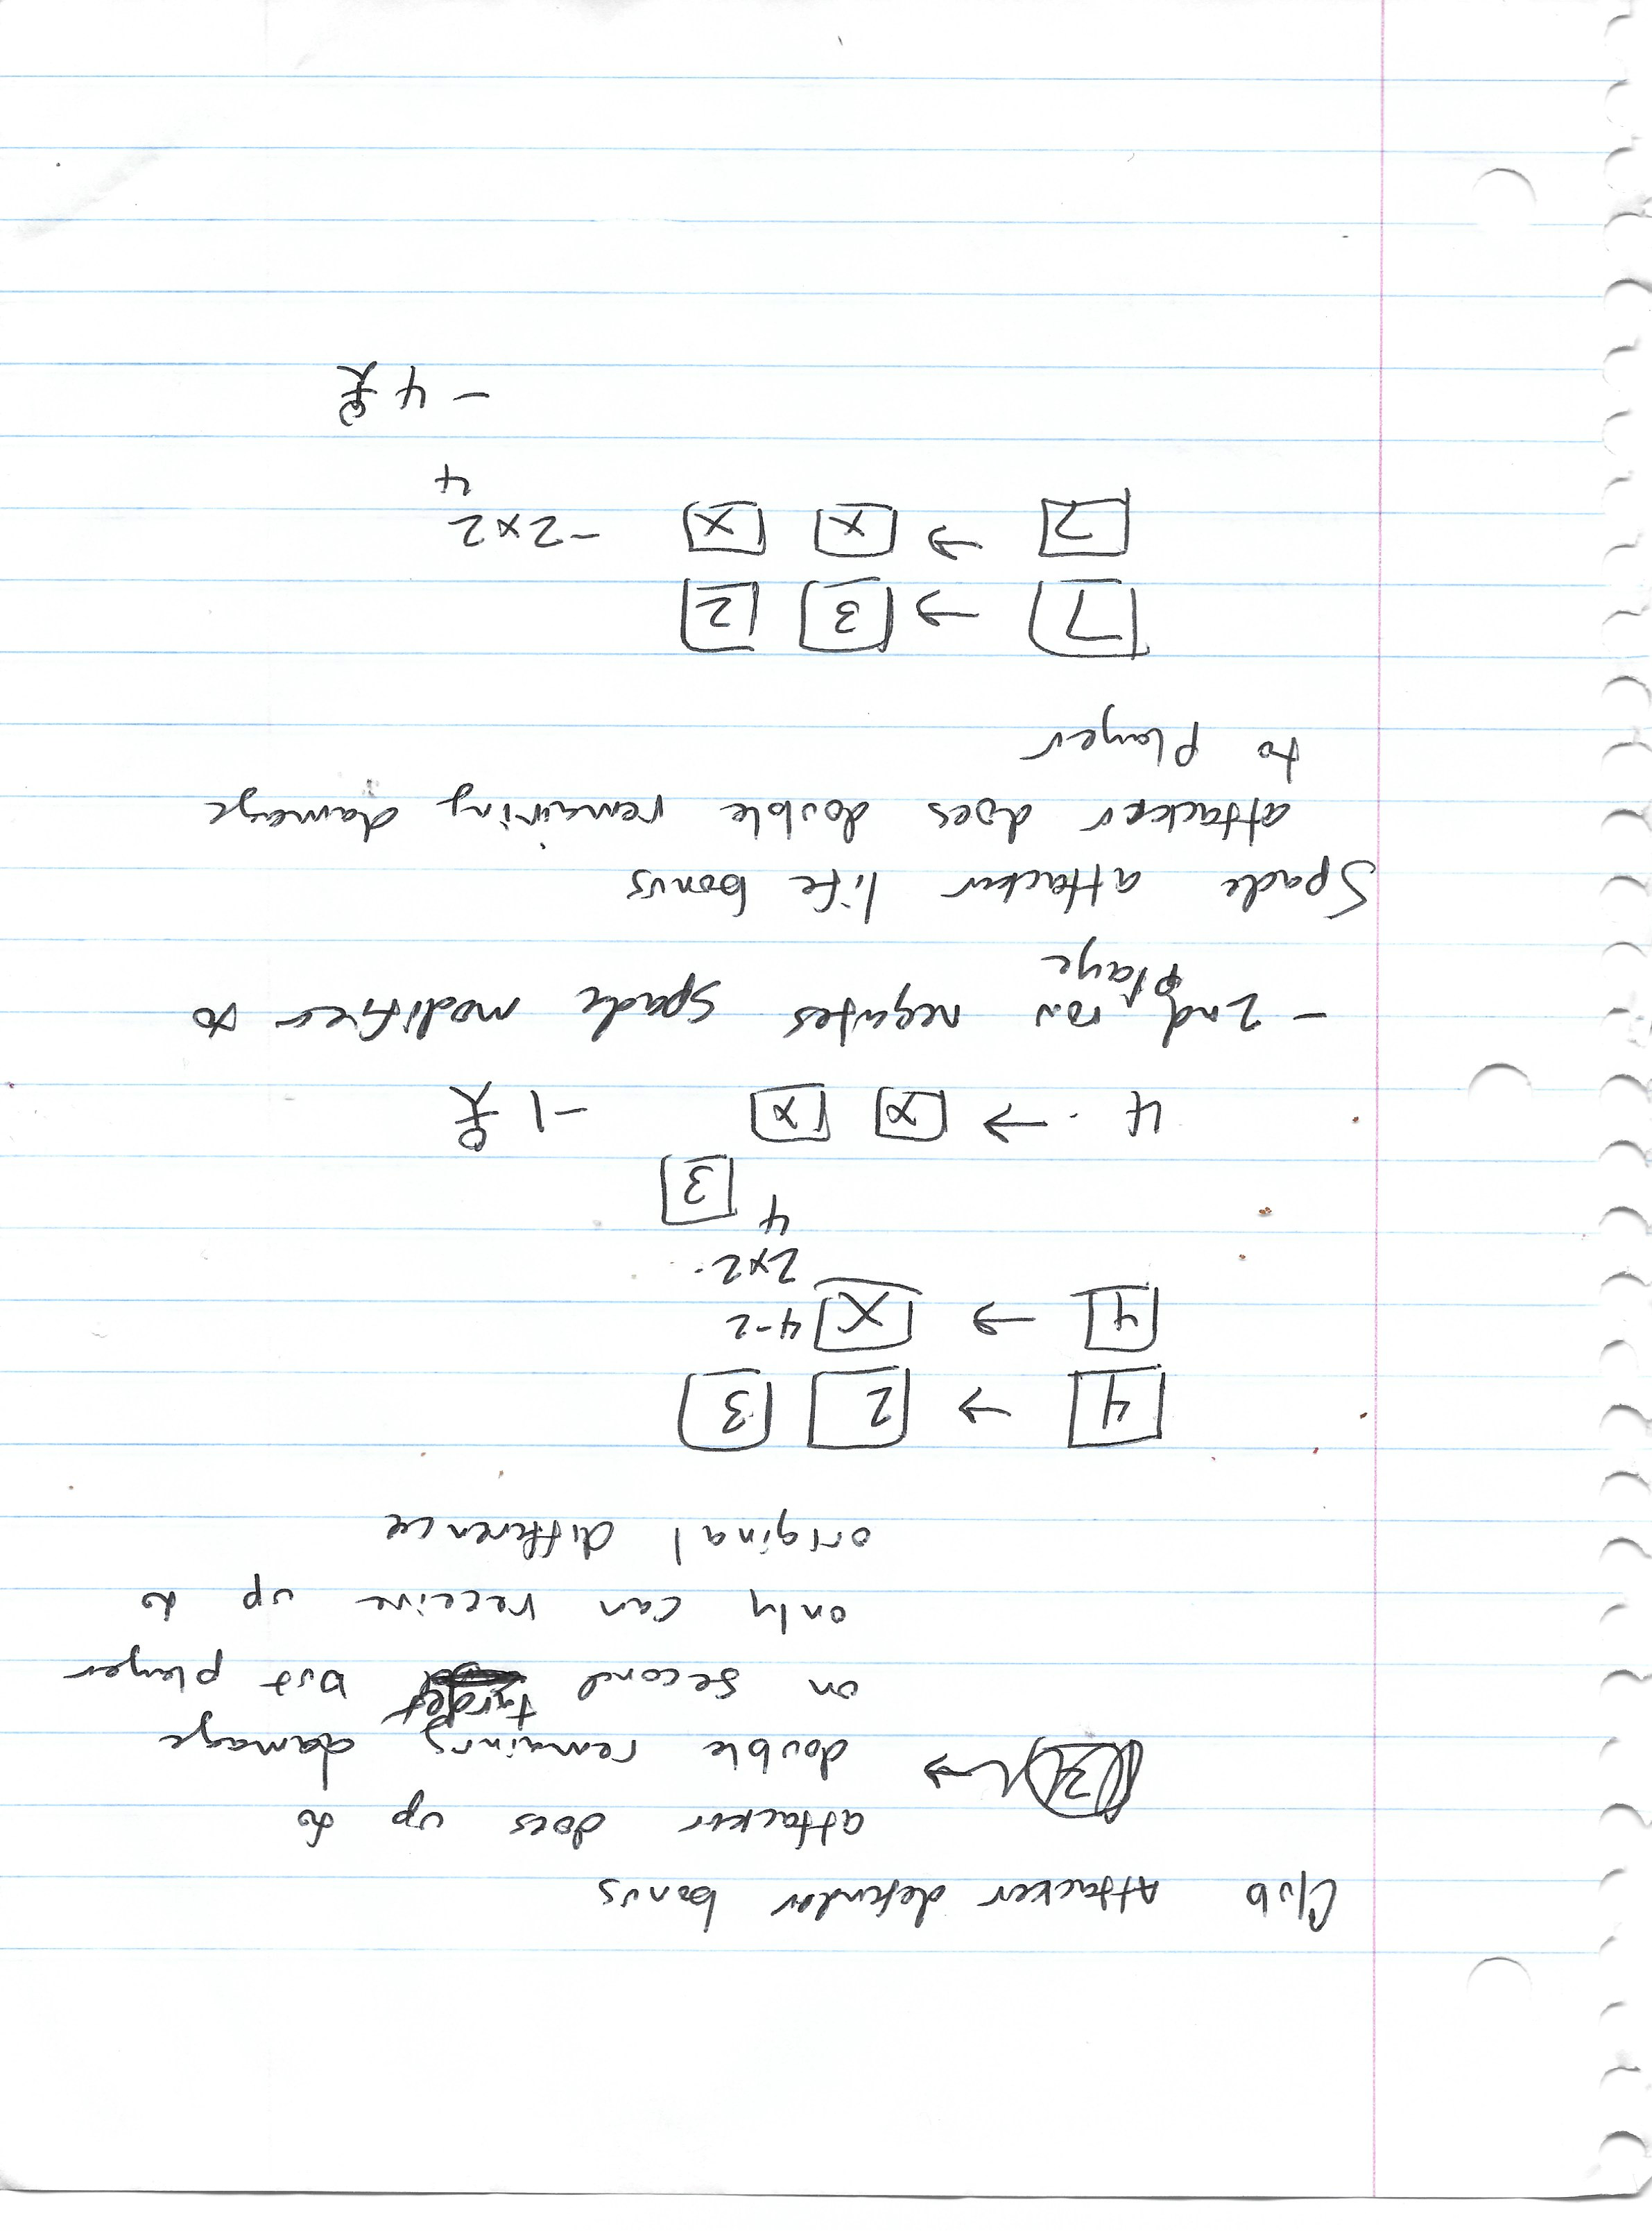 Club Attacker defender bonus
attacker does up to
double remaining damage
on second target but player
only can receive up to
original difference
4 → 2 3
4 → X 4-2
2×2
4
3
4 → X X -1
- 2nd row negates spade modifier to
playe
Spade attacker life bonus
attacker does double remaining damage
to player
7 → 3 2
2 → X X -2×2
4
- 4